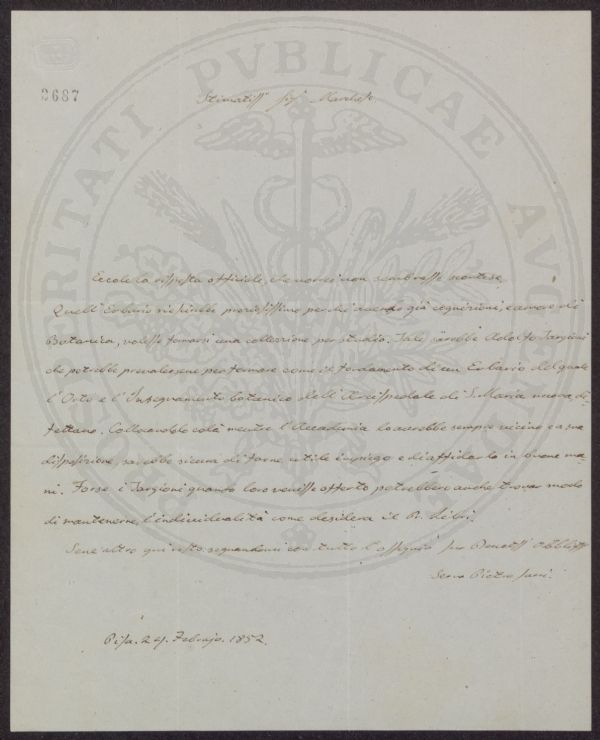 PROSPERITATI PVBLICAE AVGENDAE
2687
Stimatiss. Sig. Marchese
Eccole la risposta officiale, che vorrei non sembrasse scortese.
Quell'Erbario sarebbe preziosissimo per chi avendo già cognizioni, e amore di
Botanica, volesse formarsi una collezione per studio. Tale sarebbe Adolfo Targioni
che potrebbe prevalersene per formare come il fondamento di un Erbario del quale
l'Orto e l'Insegnamento botanico dell'Arcispedale di S. Maria nuova di-
fettano. Collocandolo colà mentre l'Accademia lo avrebbe sempre vicino e a sua
disposizione, sarebbe sicura di farne utile impiego e di affidarlo in buone ma-
ni. Forse i Targioni quando loro venisse offerto potrebbero anche trovar modo
di mantenerne l'individualità come desidera il
altro qui resto segnandomi con tutto l'ossequio suo Devotiss. Obbligatiss.
Servo Pietro Savi.
Pisa. Febrajo. 1852.